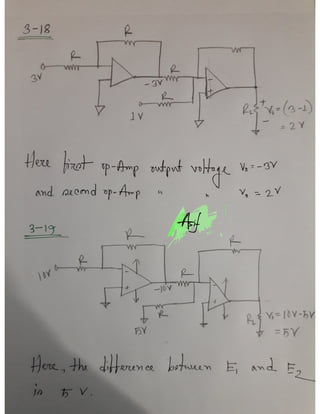 3-18
R
R
3V
-3V
R
R
1V
RL
+
V₀=(3-1)
-
= 2V
Here first op-Amp output voltage V₀=-3V
and second op-Amp " " V₀ = 2V
3-19
R
R
10V
-10V
R
R
5V
R
RL
V₀=10V-5V
=5V
Here, the difference between E₁ and E₂
is 5 V.